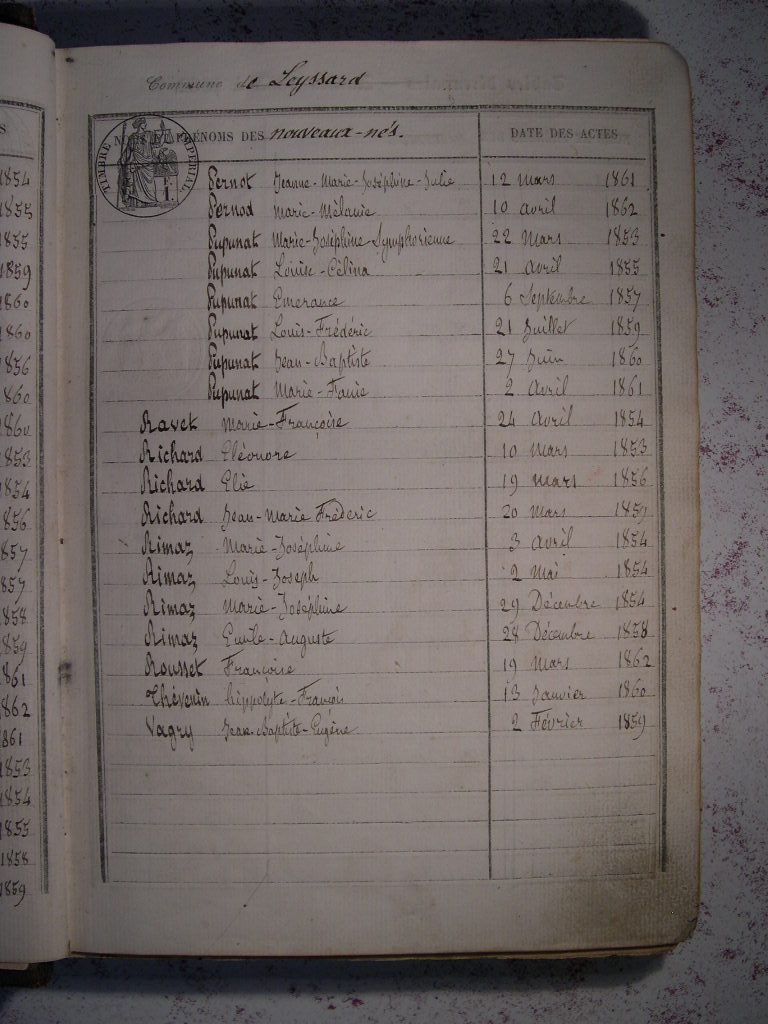 S
1854
1855
1855
1859
1860
1860
1856
1860
1860
1853
1854
1856
1857
1857
1858
1859
1861
1862
1861
1853
1854
1855
1858
1859
Commune de Leyssard
NOMS ET PRÉNOMS DES nouveaux-nés. DATE DES ACTES
TIMBRE IMPERIAL
Pernot Jeanne-Marie-Joséphine-Julie 12 Mars 1861
Pernod Marie-Mélanie 10 avril 1862
Pupunat Marie-Joséphine-Symphorienne 22 Mars 1853
Pupunat Louise-Célina 21 Avril 1855
Pupunat Emerance 6 Septembre 1857
Pupunat Louis-Frédéric 21 Juillet 1859
Pupunat Jean-Baptiste 27 Juin 1860
Pupunat Marie-Fanie 2 Avril 1861
Ravet Marie-Françoise 24 Avril 1854
Richard Eléonore 10 Mars 1853
Richard Elie 19 Mars 1856
Richard Jean-Marie Fréderic 20 Mars 1859
Rimaz Marie-Joséphine 3 Avril 1854
Rimaz Louis-Joseph 2 Mai 1854
Rimaz Marie-Joséphine 29 Décembre 1854
Rimaz Emile-Auguste 28 Décembre 1858
Rousset Françoise 19 Mars 1862
Thévenin hippolyte-François 13 Janvier 1860
Vagry Jean-Baptiste-Eugène 2 Février 1859